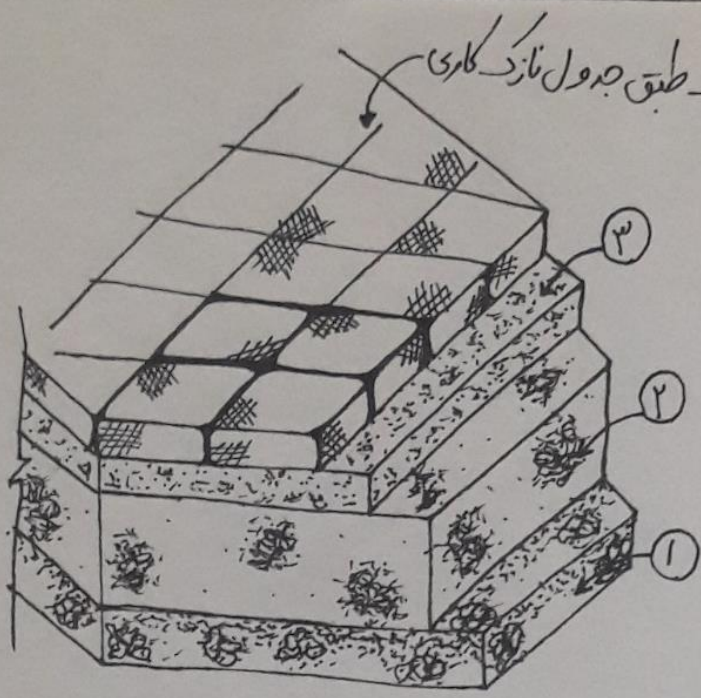 - طبق جدول نازک کاری
۳
۲
۱